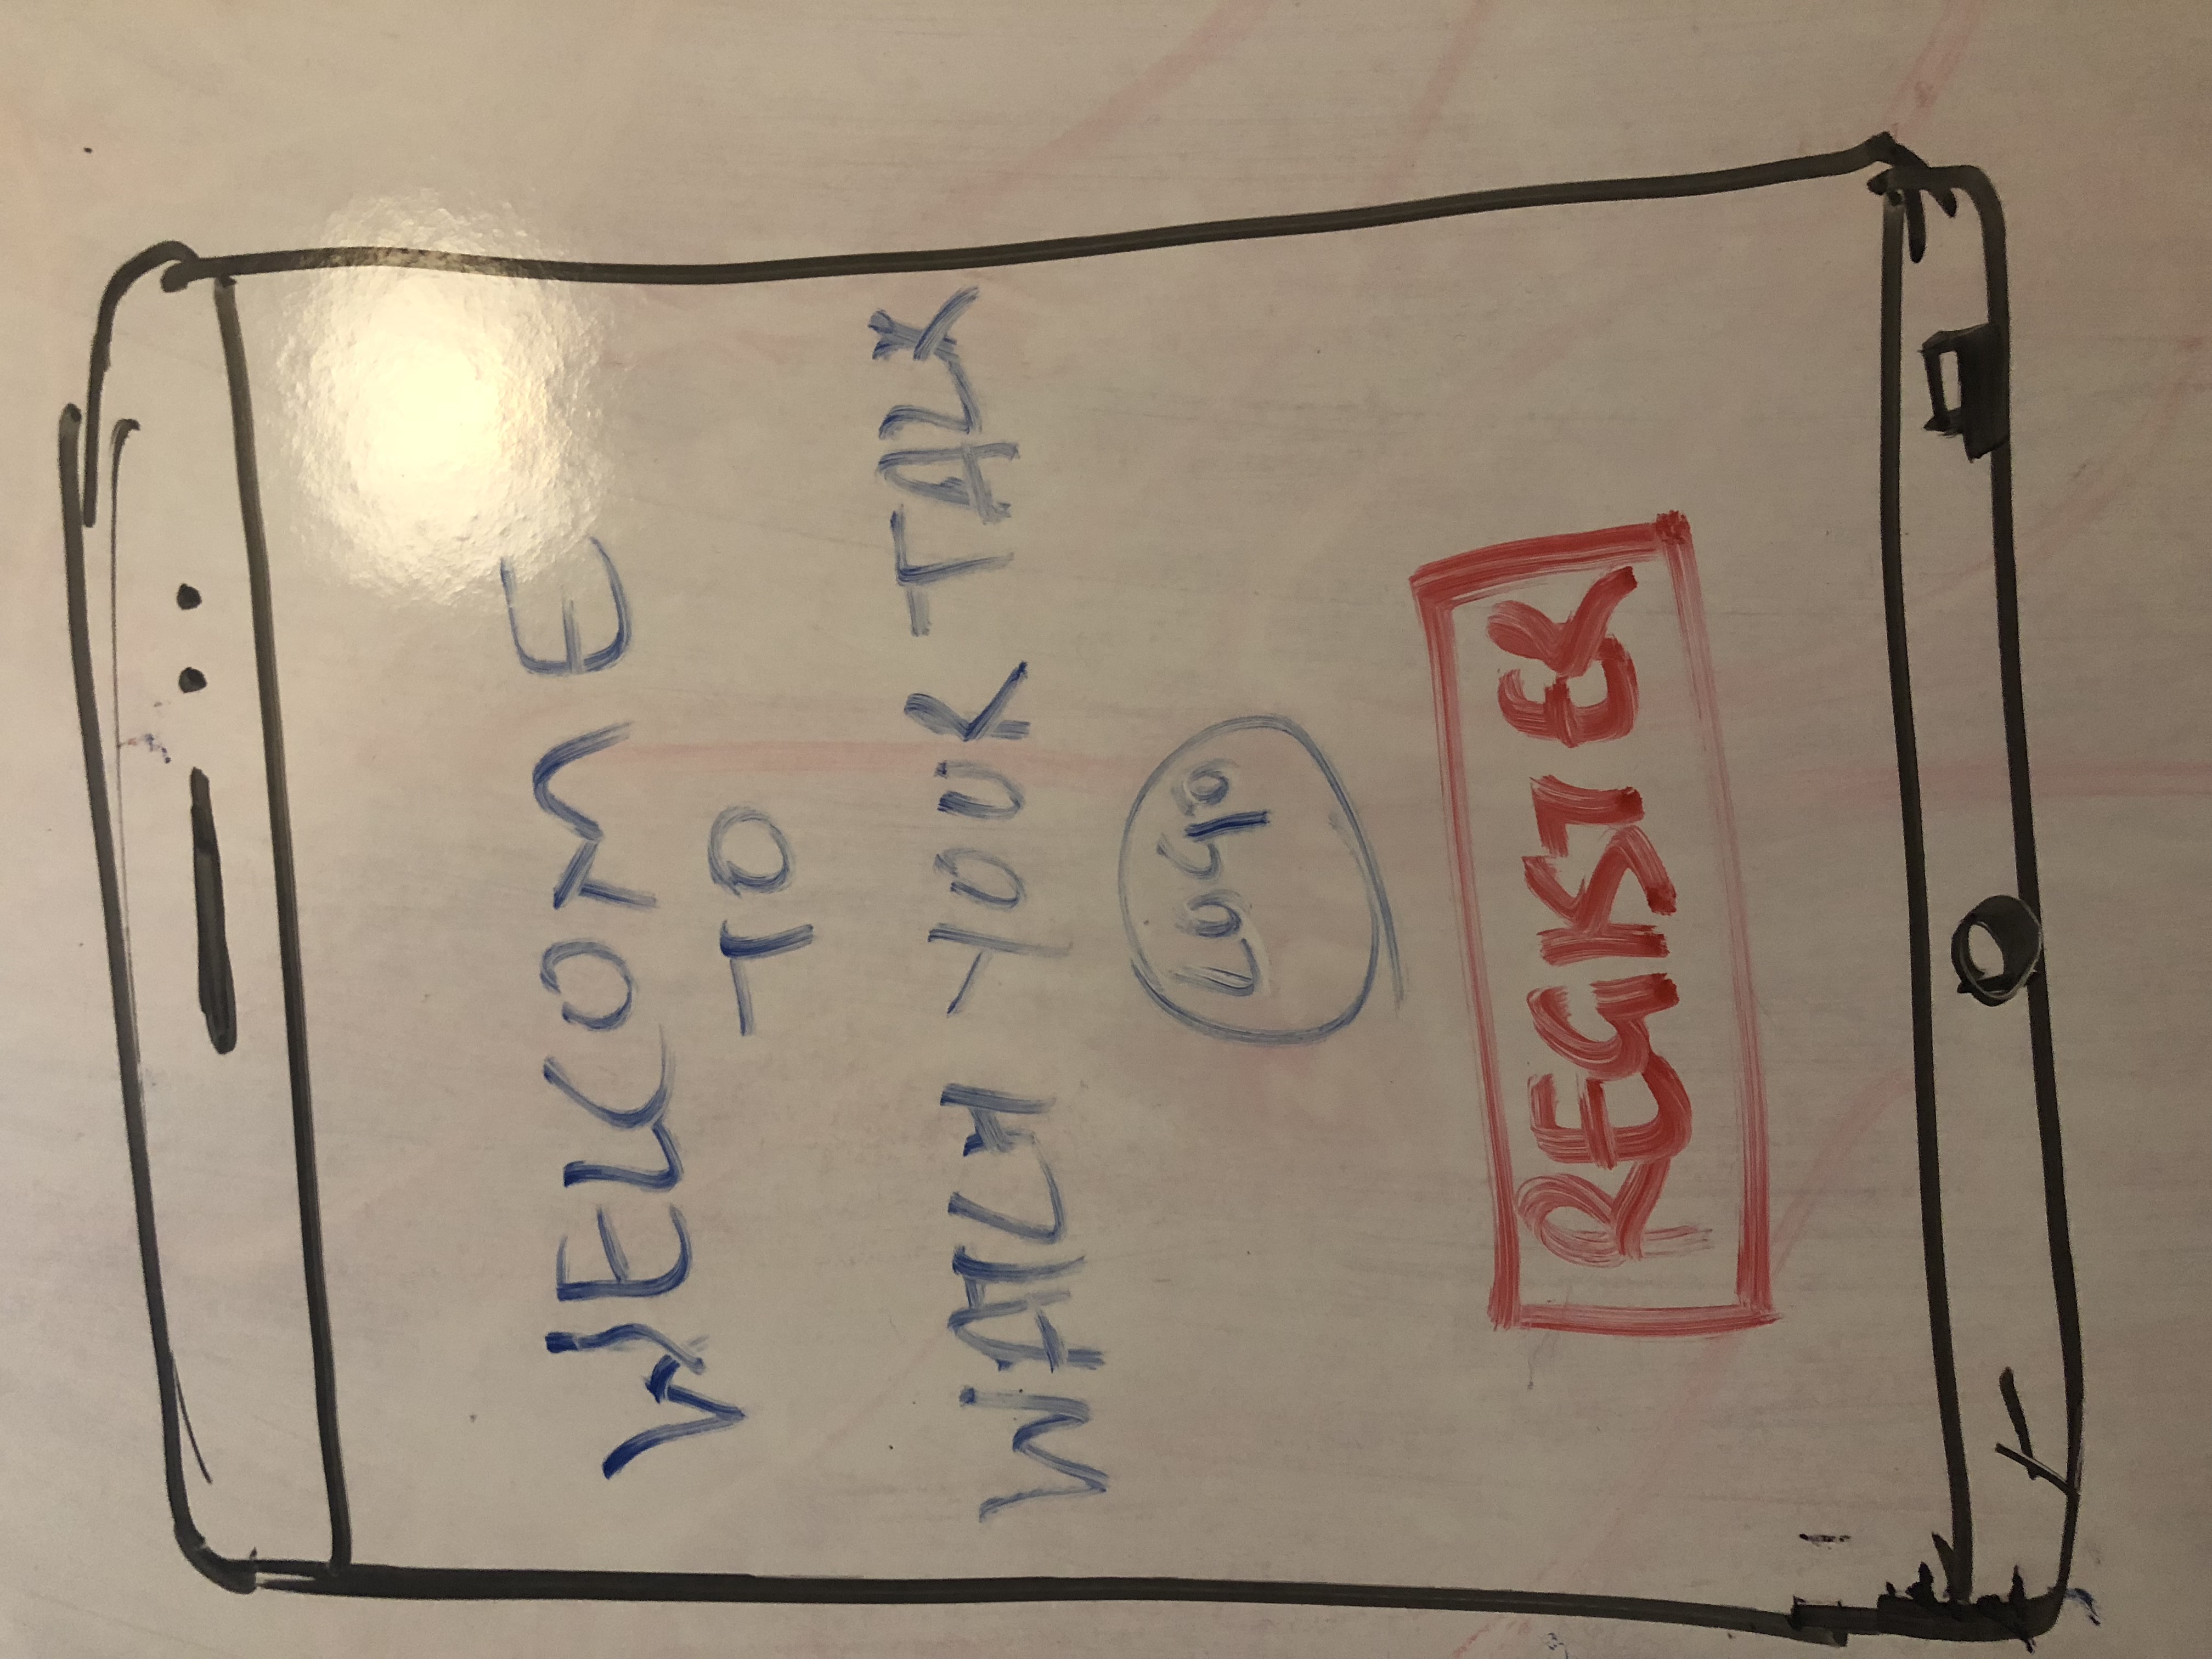 WELCOME
TO
WATCH YOUR TALK
LOGO
REGISTER